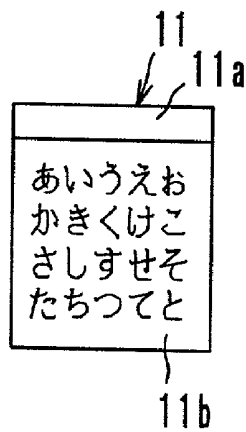 11
11a
あいうえお
かきくけこ
さしすせそ
たちつてと
11b